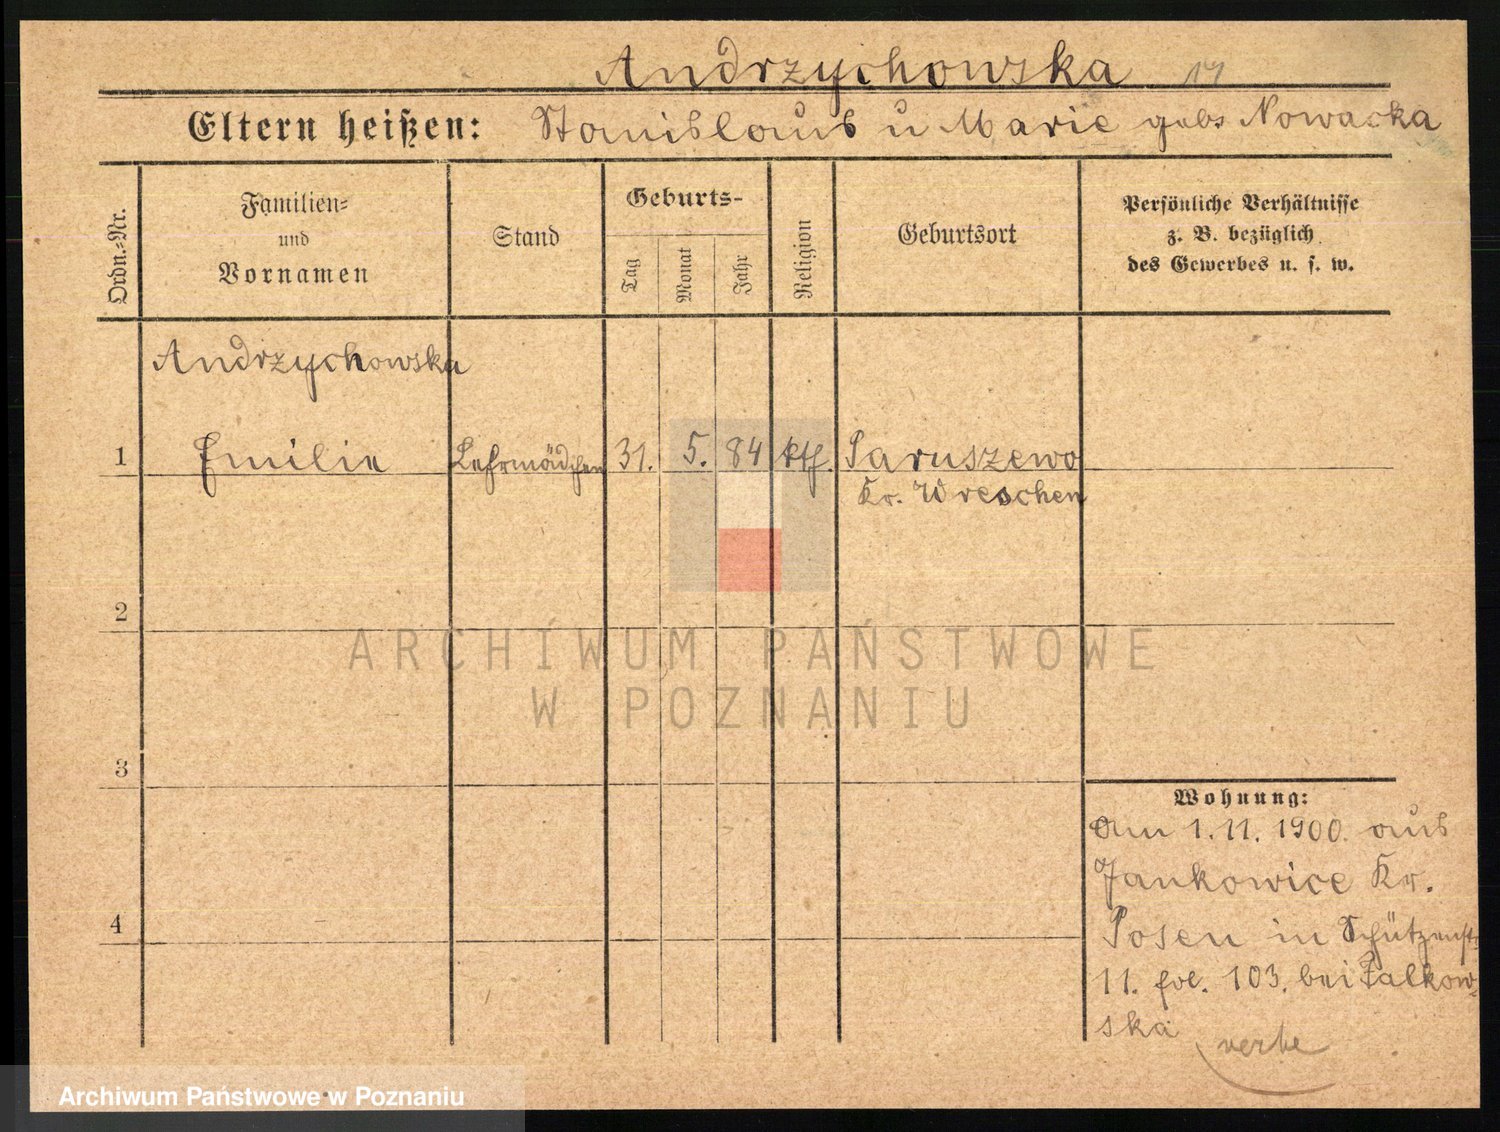 Andrzychowska 17
Eltern heißen: Stanislaus u Marie gebs Nowacka
Ordn.-Nr.
Familien-
und
Vornamen
Stand
Geburts-
Tag
Monat
Jahr
Religion
Geburtsort
Persönliche Verhältnisse
z. B. bezüglich
des Gewerbes u. s. w.
Andrzychowska
1 Emilie Lehrmädchen 31. 5. 84 kth. Paruszewo
Kr. Wreschen
2
3
4
Wohnung:
Am 1.11.1900. aus
Jankowice Kr.
Posen in Schützenstr
11. fol. 103. bei Zalkow-
ska
ARCHIWUM PAŃSTWOWE
W POZNANIU
Archiwum Państwowe w Poznaniu